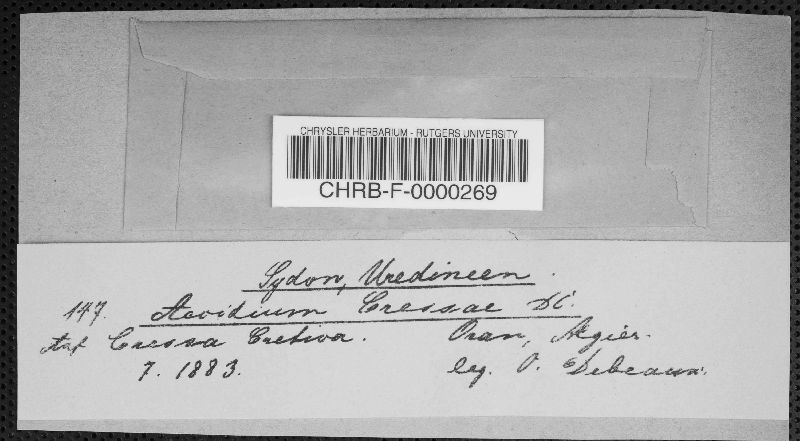 CHRYSLER HERBARIUM - RUTGERS UNIVERSITY
CHRB-F-0000269
Sydow, Uredineen.
147. Aecidium Cressae DC.
Auf Cressa Cretica. Oran, Algier.
7. 1883. leg. O. Debeaux.